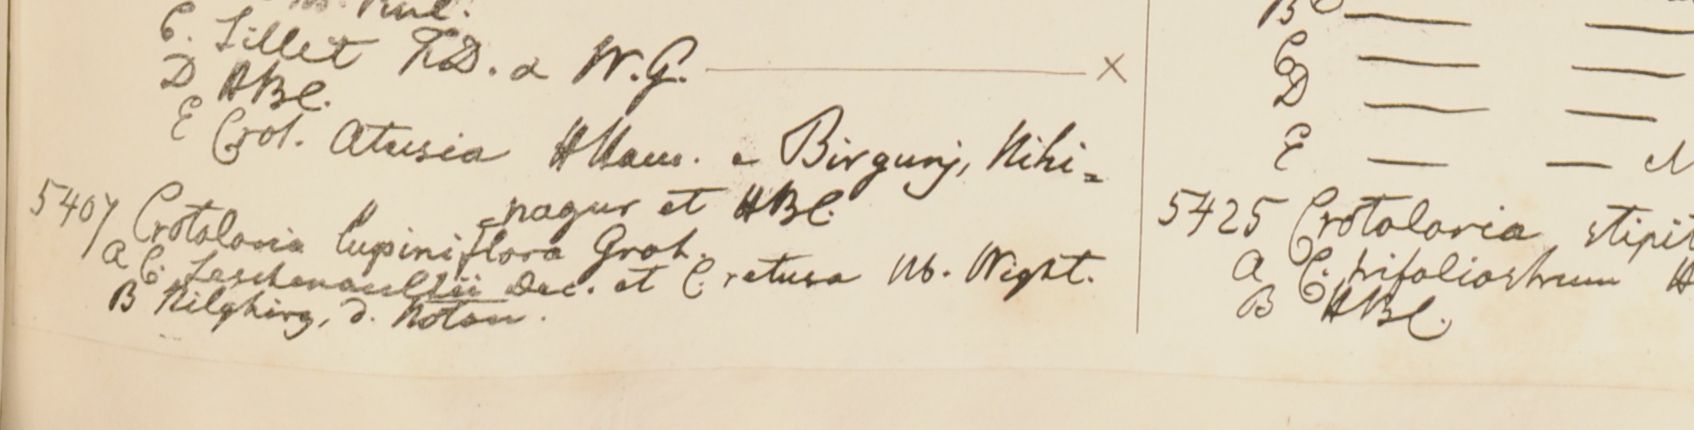 C. Sillet F.D. & W.G. ——— ×
D HBC.
E Crot. Atusia HHam. e Birgunj, Nihi=
=nagur et HBC.
5407 Crotolaria lupiniflora Grah.
A C. Leschenaultii Dec. et C. retusa Hb. Wight.
B Nilghiry, d. Noton.
B —— ——
C —— ——
D —— ——
E —— ——
5425 Crotolaria stipit
A C. trifoliastrum H
B HBC.